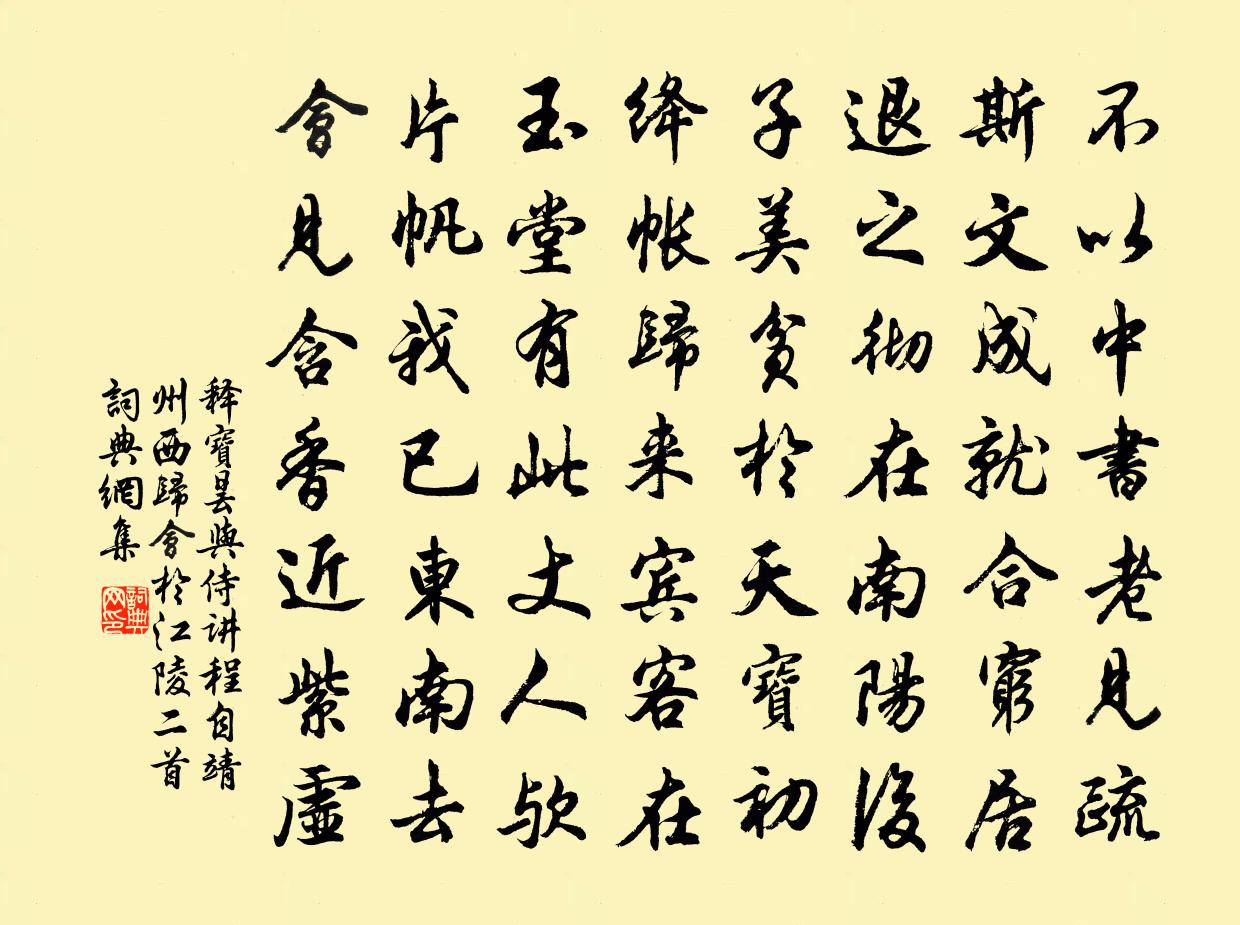 不以中書老見疏
斯文成就合窮居
退之彻在南陽後
子美贫於天寶初
绛帐歸来宾客在
玉堂有此丈人欤
片帆我已東南去
會見含香近紫虛
释寶曇與侍讲程自靖
州西歸會於江陵二首
詞典網集
詞典网印